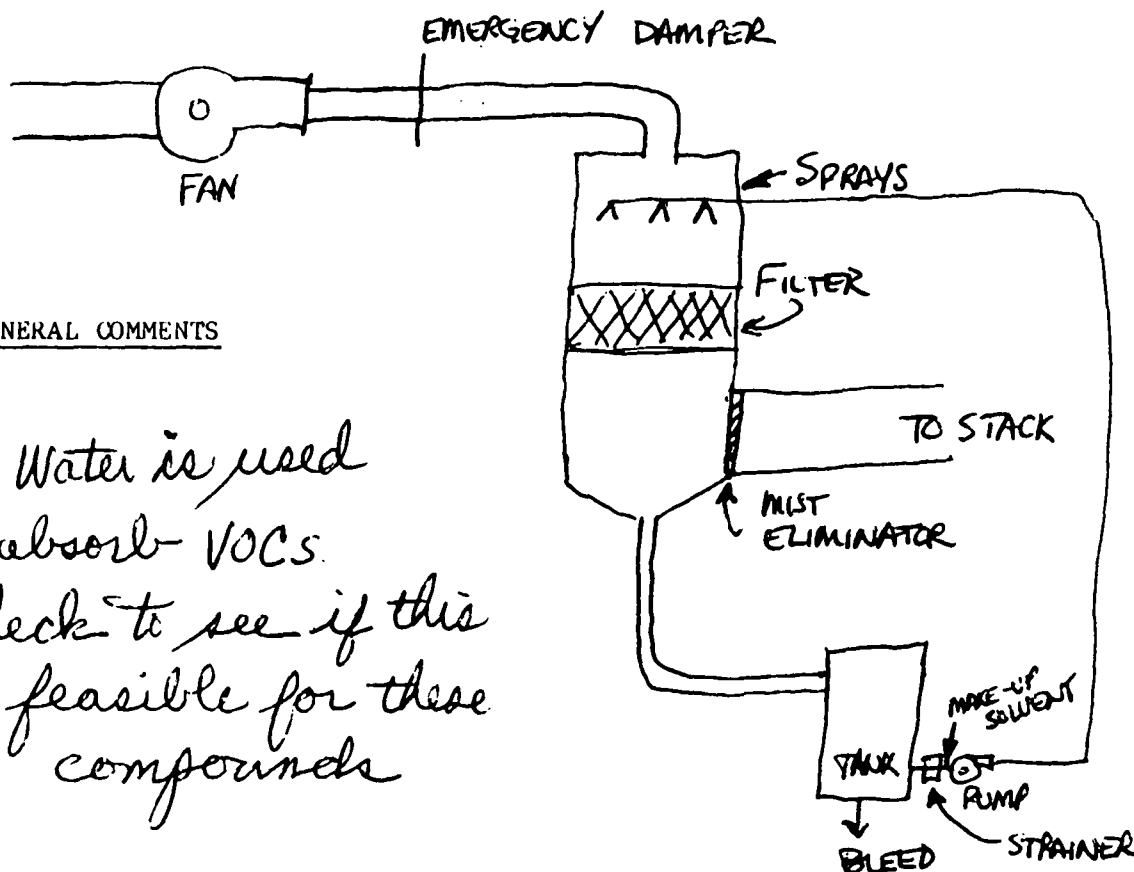 EMERGENCY DAMPER
FAN
SPRAYS
FILTER
NERAL COMMENTS
TO STACK
Water is used
absorb VOCs.
eck to see if this
feasible for these
compounds
MIST
ELIMINATOR
MAKE-UP
SOLVENT
TANK
PUMP
STRAINER
BLEED